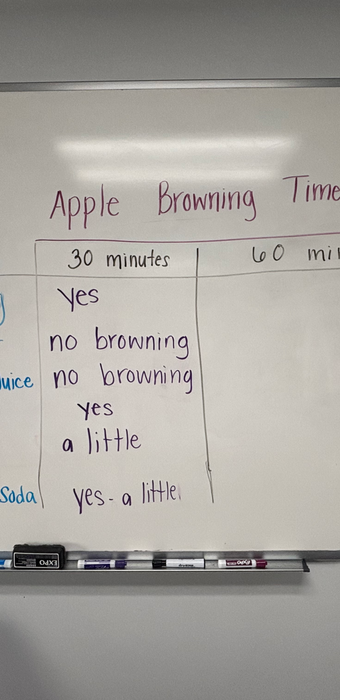 Apple Browning Time
30 minutes 60
yes
no browning
juice no browning
yes
a little
Soda yes - a little
EXPO
EXPO